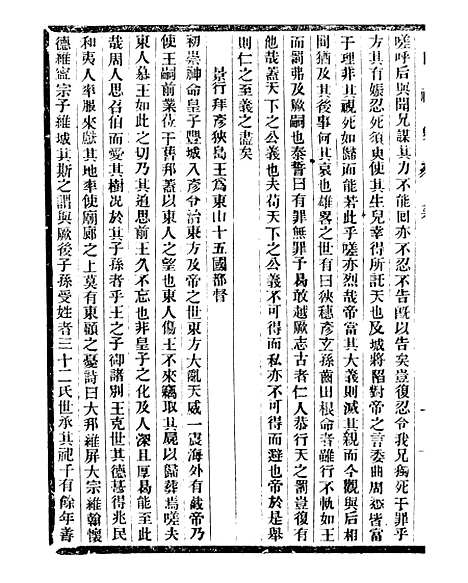 嗟呼后與聞兄謀其力不能回亦不忍不告既以告矣豈復忍令我兄殉死于罪乎
方其有娠忍死須臾使其生兒幸得所託天也及城將陷對帝之言委曲周悉皆當
于理非其視死如歸而能若此乎嗟亦烈哉帝富其大義則滅其親而今觀與后相
問猶及其後事何其哀也雄略之世有曰狹穗彥玄孫齒田根命者雖行不軌如王
而罰弗及厥嗣也泰誓曰有罪無罪予曷敢越厥志古者仁人恭行天之罰豈復有
他哉蓋天下之公義也夫苟天下之公義也不可得而私焉不可得而避也帝於是舉
則仁之至義之盡矣
景行拜彥狹島王爲東山十五國都督
初崇神命皇子豐城入彥令治東方帝之世東方大亂天威一震海外有截帝乃
使王嗣前業位于舊邦蓋以東人之望也東人傷王不來竊取其屍以歸葬焉嗟夫
東人慕王如此之切乃其追思前王久不忘也非皇子之化及人深且厚曷能至此
哉周人思召伯而愛其樹况於其子孫者乎王之子御諸別王克世其德甚得兆民
和夷人率服來獻其地率使廟廊之上莫有東顧之憂詩曰大邦維屏大宗維翰懷
德維寧宗子維城其斯之謂與厥後子孫受姓者三十二氏世承其祀千有餘年善